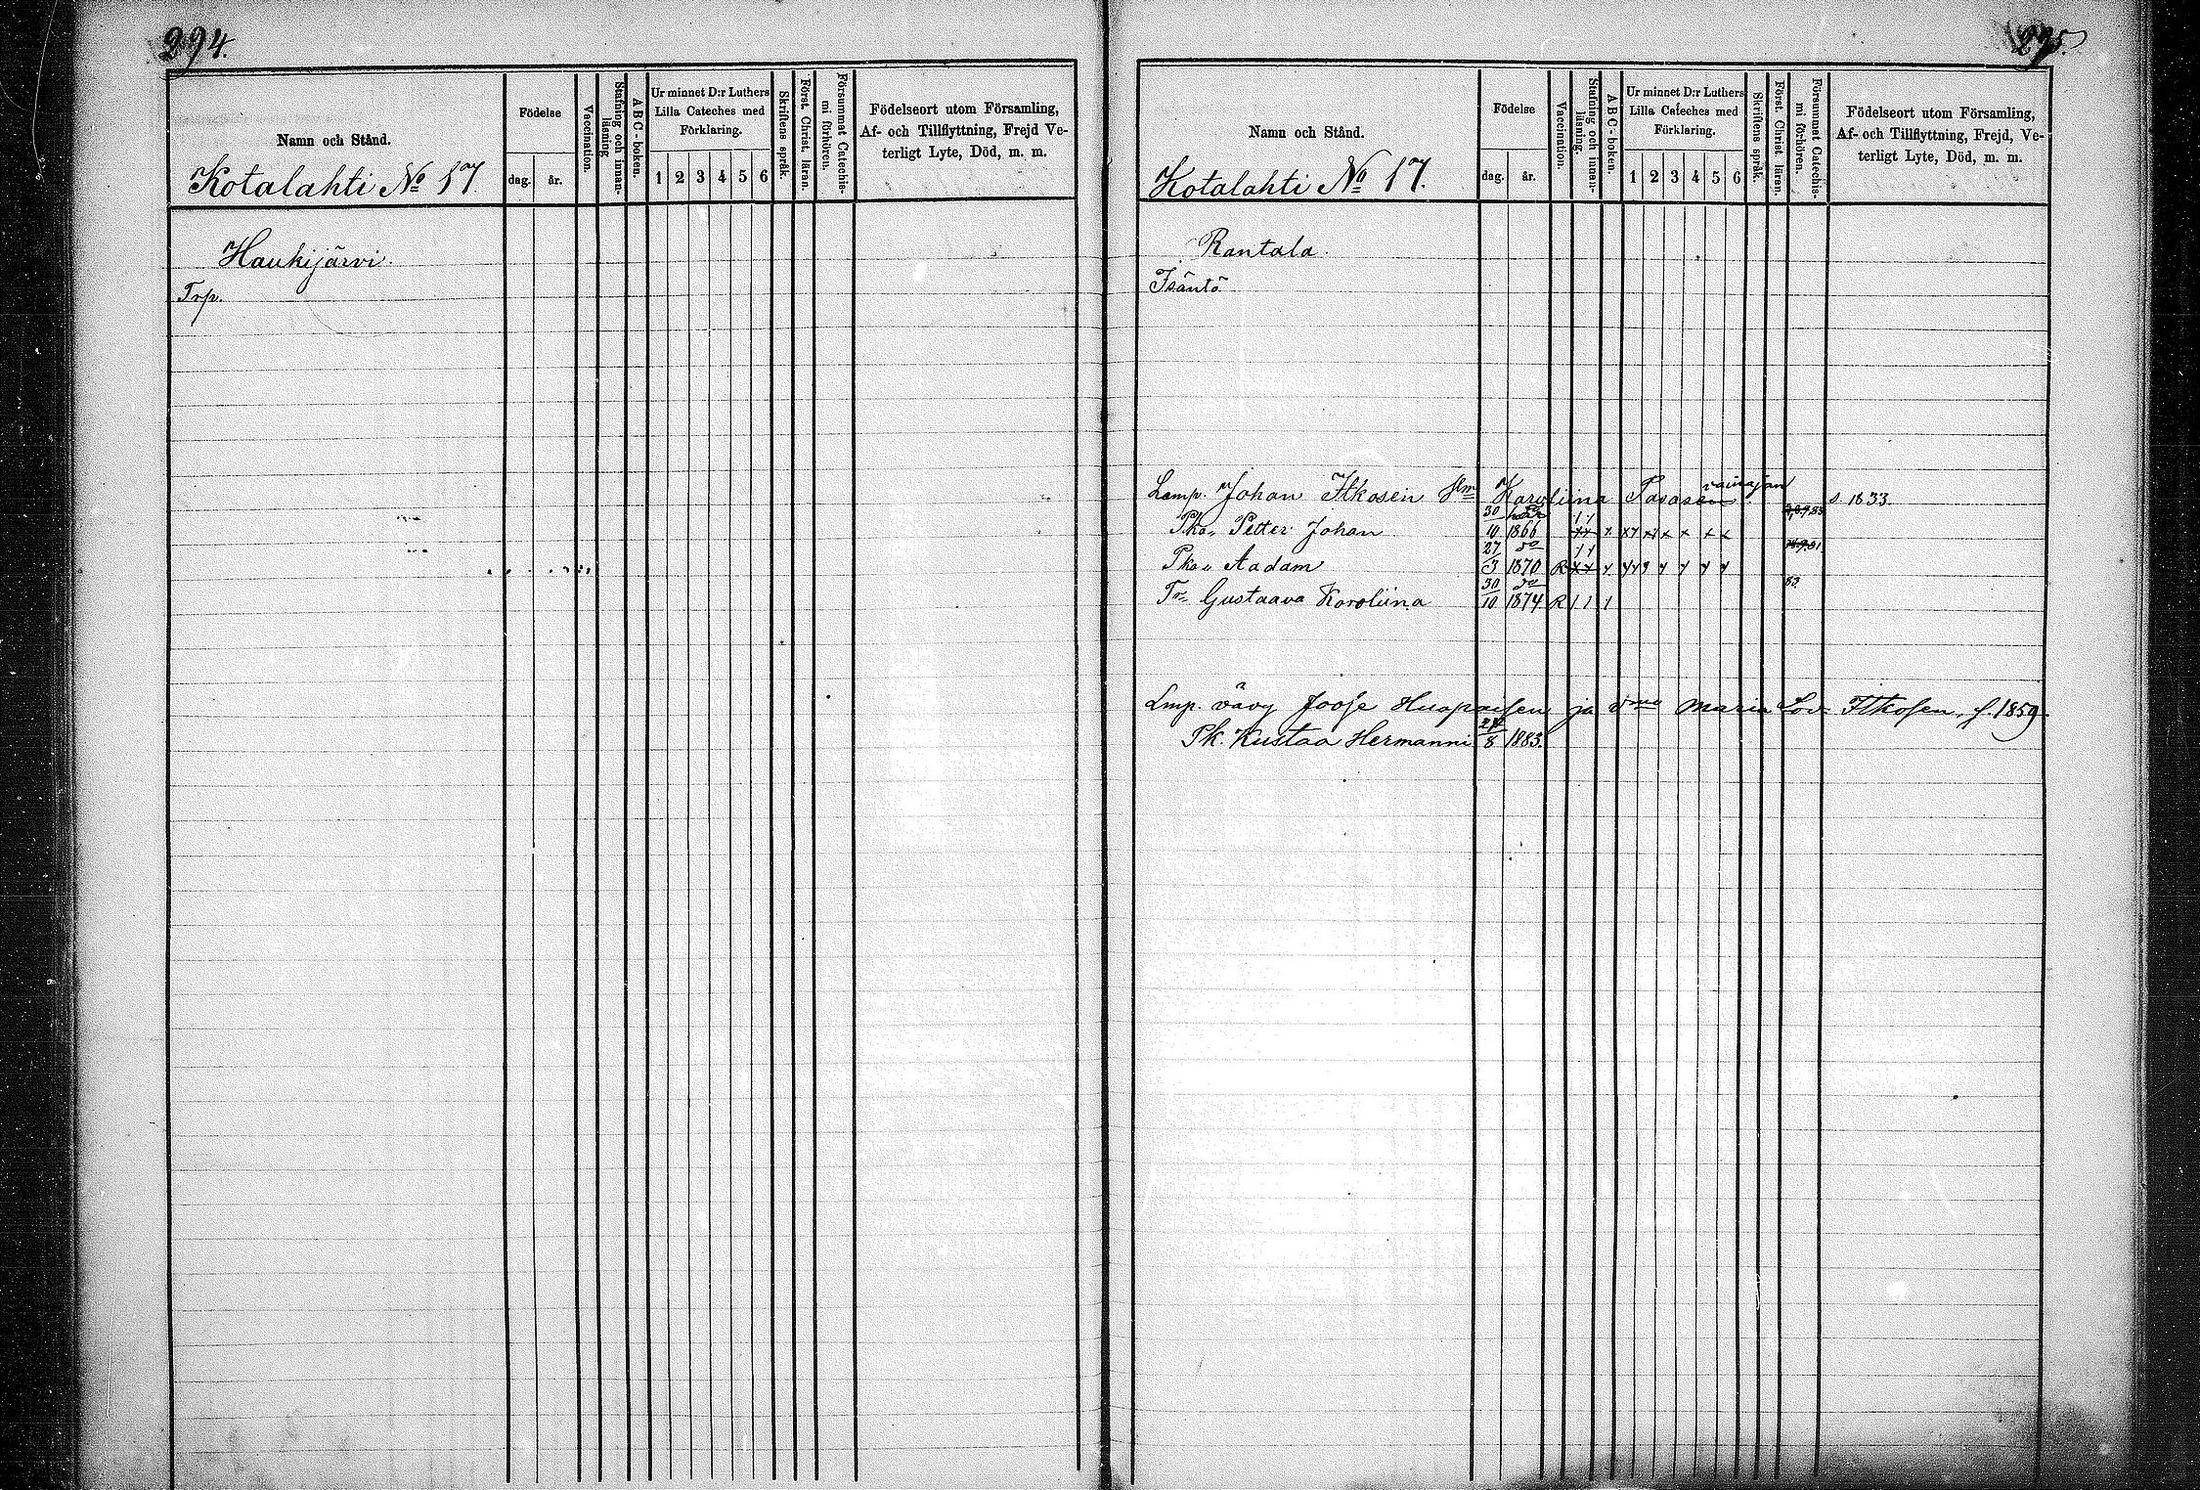 294.
Namn och Stånd.
Kotalahti No 17
Födelse
dag.
år.
Vaccination.
Stafning och innanläsning
ABC-boken.
Ur minnet D:r Luthers
Lilla Cateches med
Förklaring.
1 2 3 4 5 6
Skriftens språk.
Först. Christ. läran.
Försummat Catechismi förhören.
Födelseort utom Församling,
Af- och Tillflyttning, Frejd Ve-
terligt Lyte, Död, m. m.
Haukijärvi.
Trp.
295.
Namn och Stånd.
Kotalahti No 17.
Födelse
dag.
år.
Vaccination.
Stafning och innanläsning.
ABC-boken.
Ur minnet D:r Luthers
Lilla Cateches med
Förklaring.
1 2 3 4 5 6
Skriftens språk.
Först. Christ. läran.
Försummat Catechismi förhören.
Födelseort utom Församling,
Af- och Tillflyttning, Frejd, Ve-
terligt Lyte, Död, m. m.
Rantala.
Isäntö
Lamp. Johan Itkosen Karoliina s. 1833.
Pka Petter Johan 30/10 1866
Pka Aadam 27/3 1870 R
Tr Gustaava Karoliina 30/10 1874 R 1 1 1 83
Lmp. vävy Joose Huopaisen ja Vmo Maria Lov. Itkosen, s. 1859
Pk. Kustaa Hermanni 8 1883.